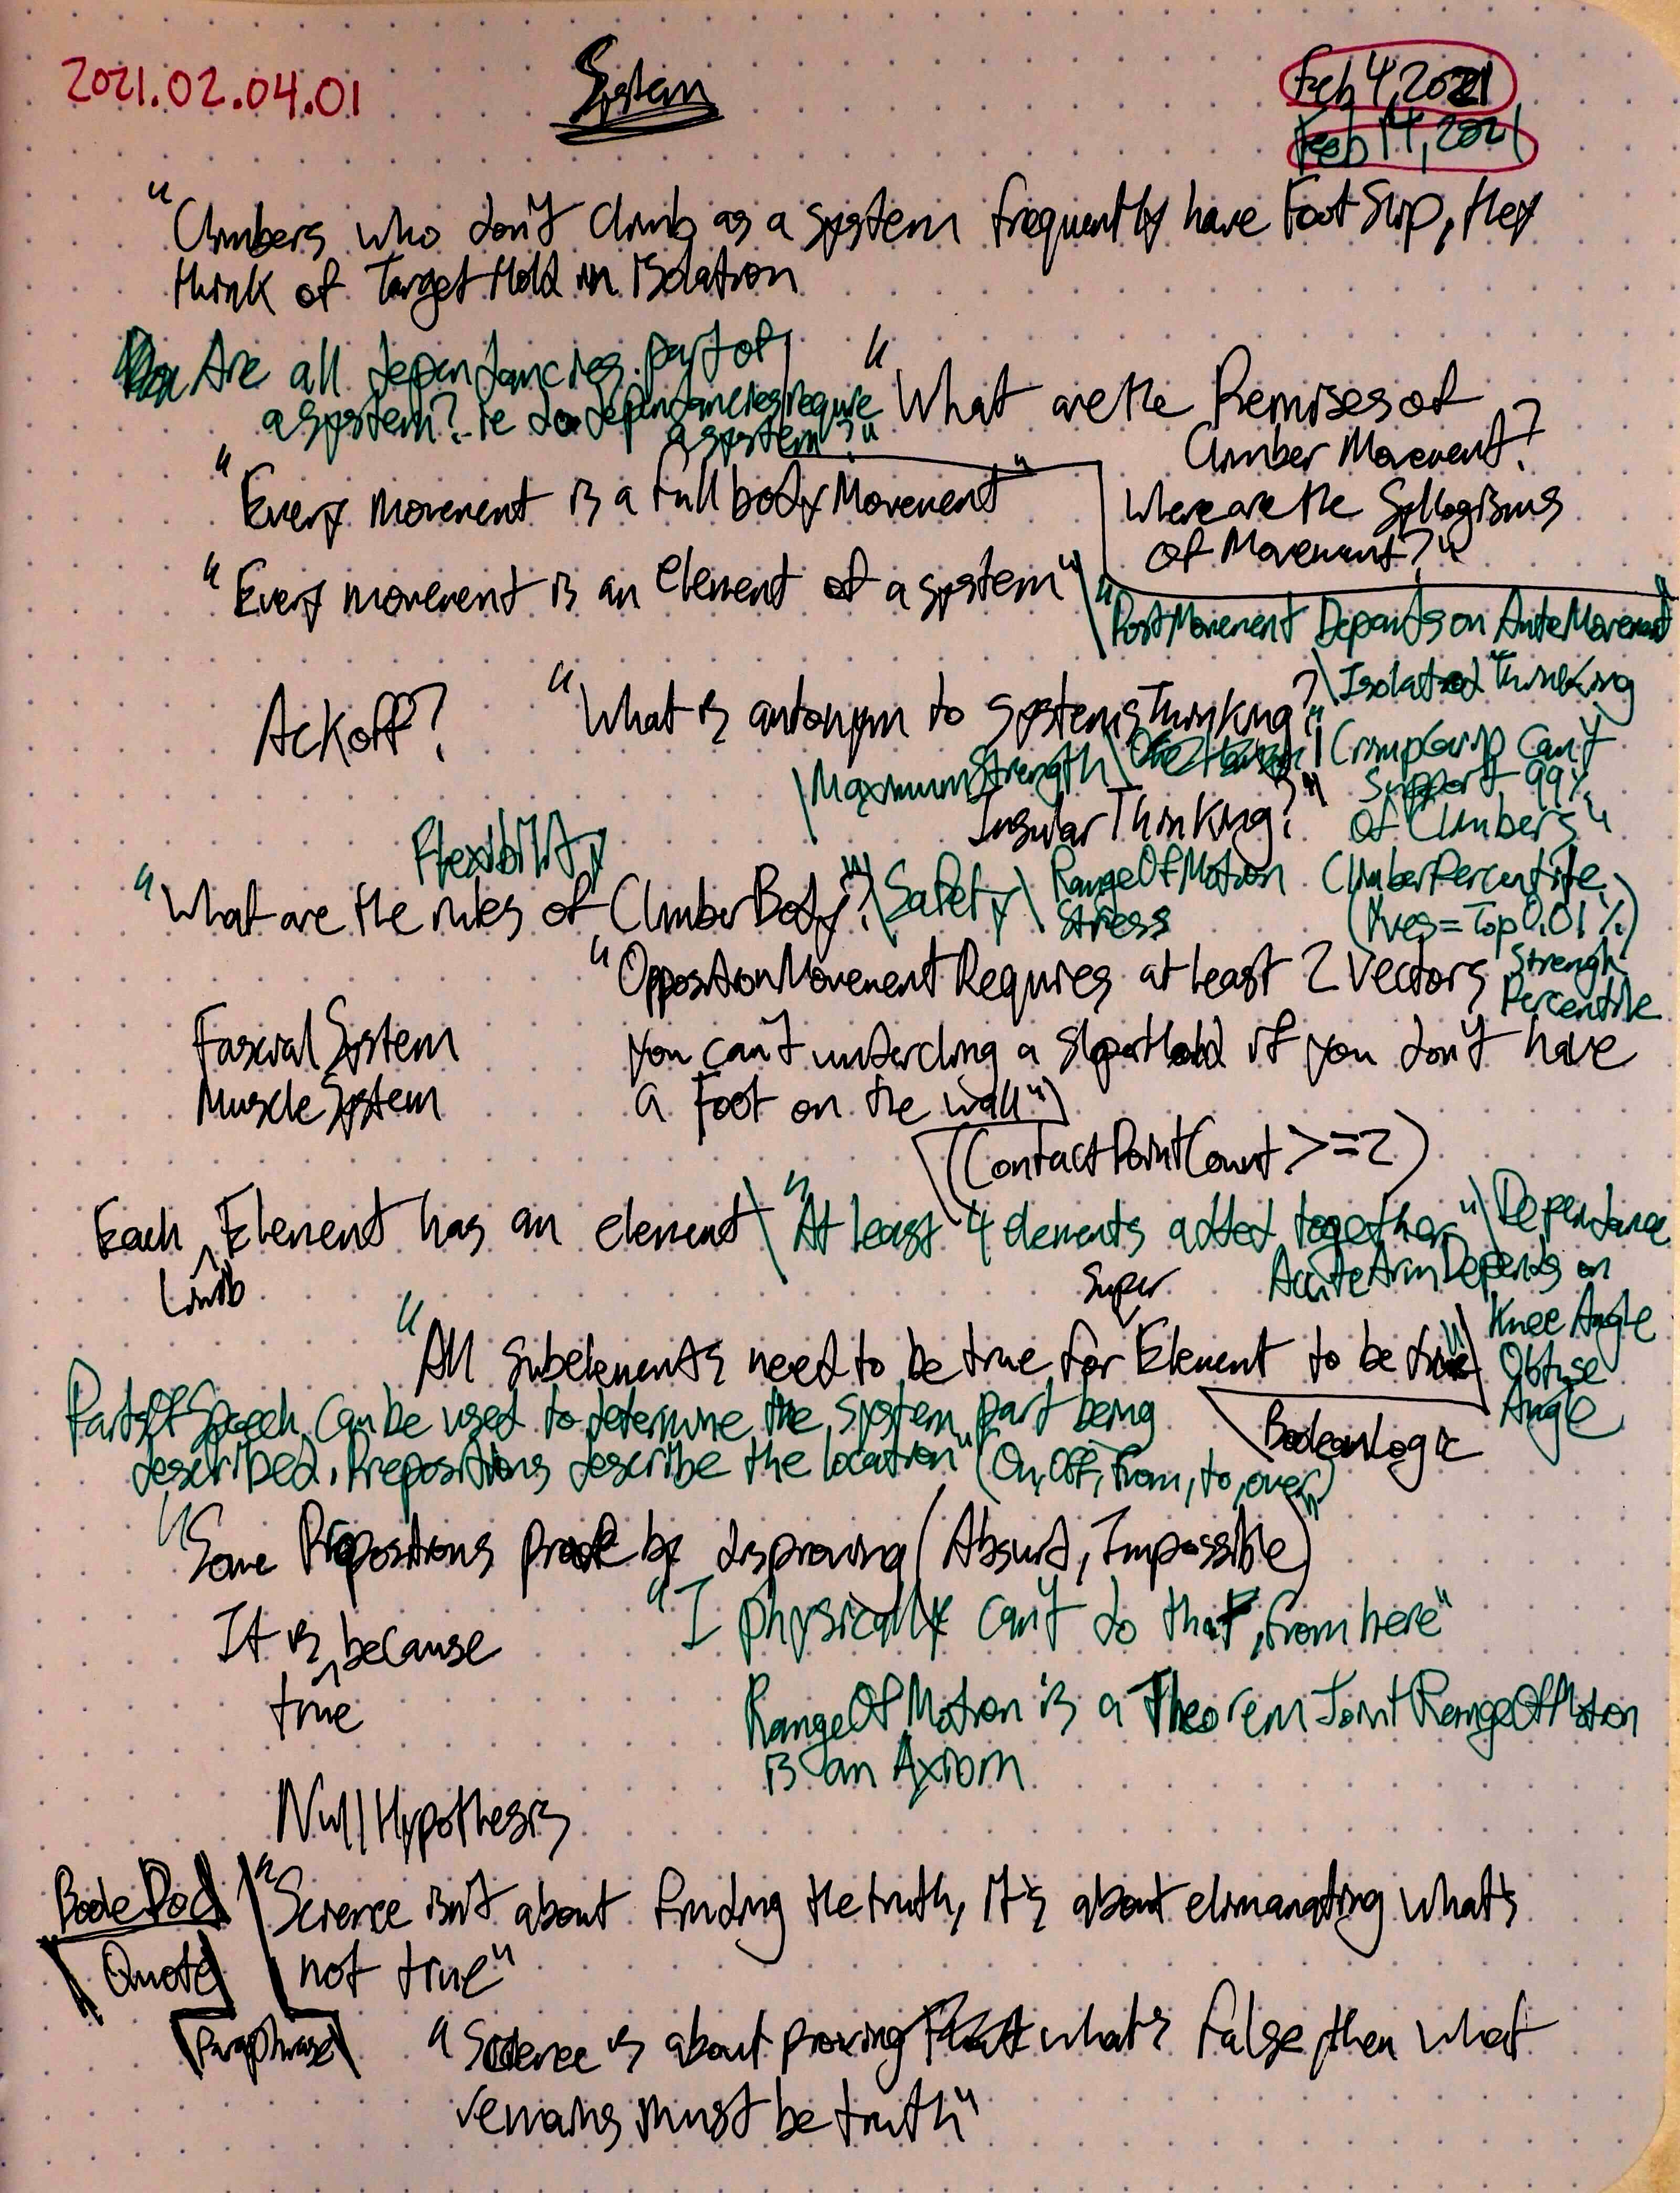 2021.02.04.01
System
Feb 4, 2021
Feb 14, 2021
"Climbers who don't climb as a system frequently have FootSlip, they
think of TargetHold in isolation
Are all dependancies part of
a system? ie do dependancies require
a system?"
"What are the Premises of
Climber Movement?
Where are the Syllogisms
of Movement?"
"Every movement is a full body Movement"
"Every movement is an element of a system"
"PostMovement Depends on AnteMovement"
Ackoff?
"What is antonym to systemsThinking?
Isolated Thinking
MaximumStrength
InsularThinking?"
CrimpGrip Can't
Support 99%
of Climbers"
Flexibility
"What are the rules of ClimberBody?"
Safety
RangeOfMotion
Stress
ClimberPercentile
(Yves=Top 0.01%)
Strengh
Percentile
"OppositionMovement Requires at least 2 Vectors
Fascial System
Muscle System
You can't undercling a SloperHold if you don't have
a Foot on the wall"
(ContactPointCount >=2)
Each Limb Element has an element
"At least 4 elements added together"
Dependance
AccuteArm Depends on
Knee Angle
Obtuse
Angle
"All subelements need to be true for Super Element to be true"
BooleanLogic
PartsOfSpeech can be used to determine the system part being
described. Prepositions describe the location" (On, Off, From, to, over)
"Some Propositions prove by disproving (Absurd, Impossible)"
It is true because
"I physically can't do that, from here"
RangeOfMotion is a Theorem JointRangeOfMotion
is an Axiom
NullHypothesis
Quote
"Science isn't about finding the truth, it's about elimanating what's
not true"
Paraphrase
"Science is about proving what's false, then what
remains must be truth"